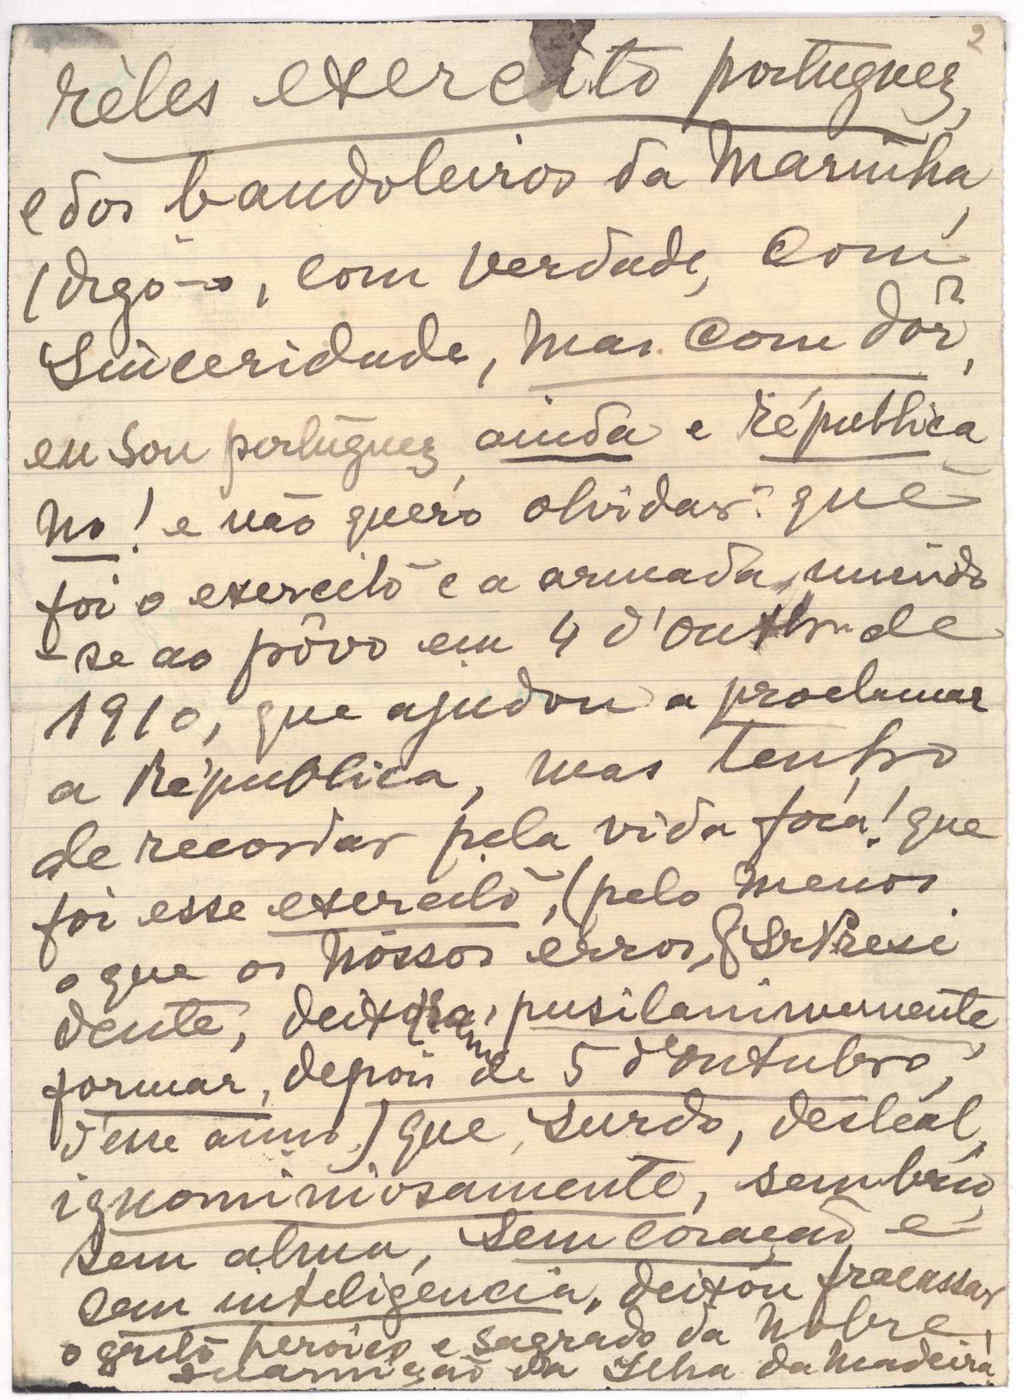 2
réles exercito portuguez,
e dos bandoleiros da Marinha,
(digo-o, com verdade, com
sinceridade, mas com dôr,
eu sou portuguez ainda e républica
no! e não quero olvidar: que
foi o exercito e a armada, unindo
-se ao pôvo em 4 d'Outbr- de
1910, que ajudou a proclamar
a Républica, mas tenho
de recordar pela vida fóra! que
foi esse exercito, (pelo menos
o que os nóssos erros, Sr Presi
dente, deixaram, pusilanimemente,
formar, depois de 5 d'Outubro,
d'esse anno) que, surdo, desleal,
ignominiosamente, sem brio,
sem alma, sem coração e
sem inteligencia, deixou fracassar
o grito heroico e sagrado da Nobre
Guarnição da Ilha da Madeira,